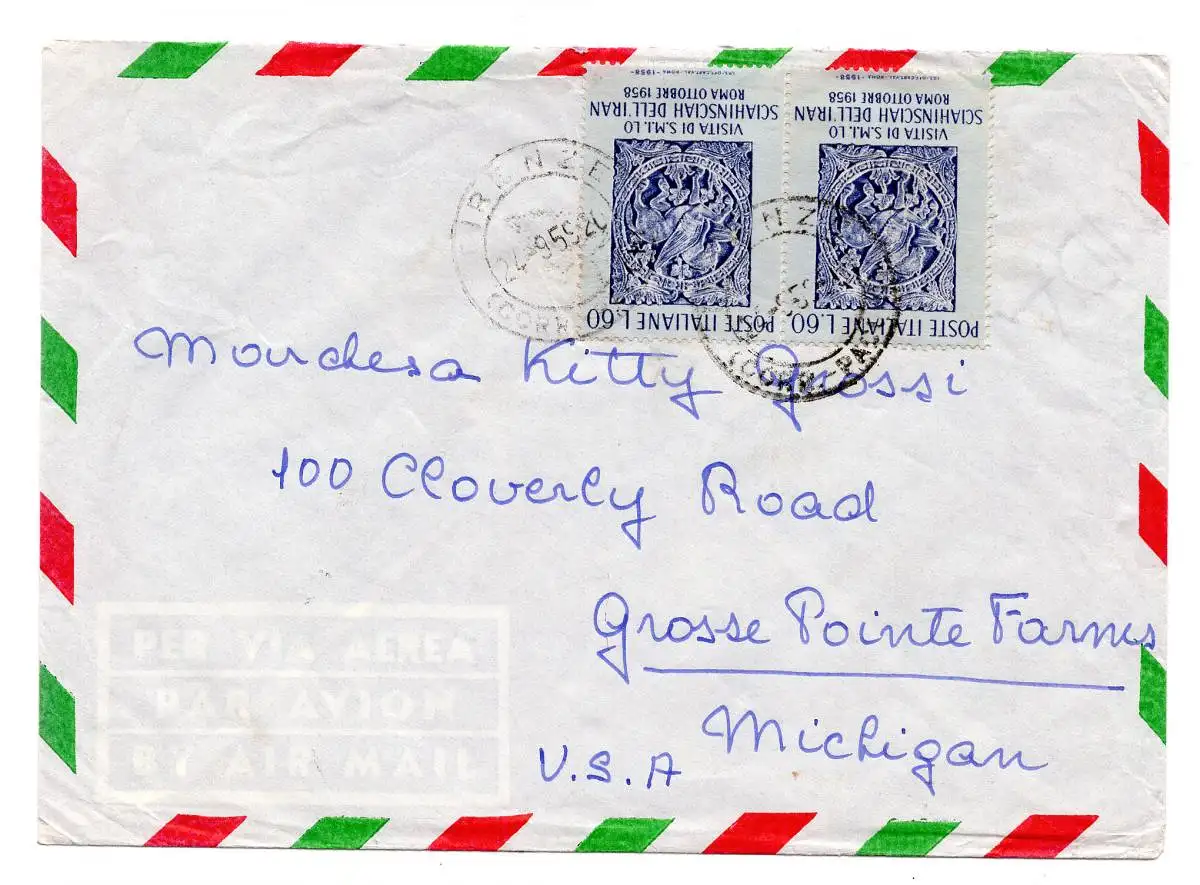 VISITA DI S.M.I. LO
SCIAHINSCIAH DELL'IRAN
ROMA OTTOBRE 1958
POSTE ITALIANE L.60
VISITA DI S.M.I. LO
SCIAHINSCIAH DELL'IRAN
ROMA OTTOBRE 1958
POSTE ITALIANE L.60
IRENZE
(CORR
(CORR-PA
Kitty Grossi
100 Cloverly Road
Grosse Pointe Farms
Michigan
U.S.A
PER VIA AEREA
PAR AVION
BY AIR MAIL